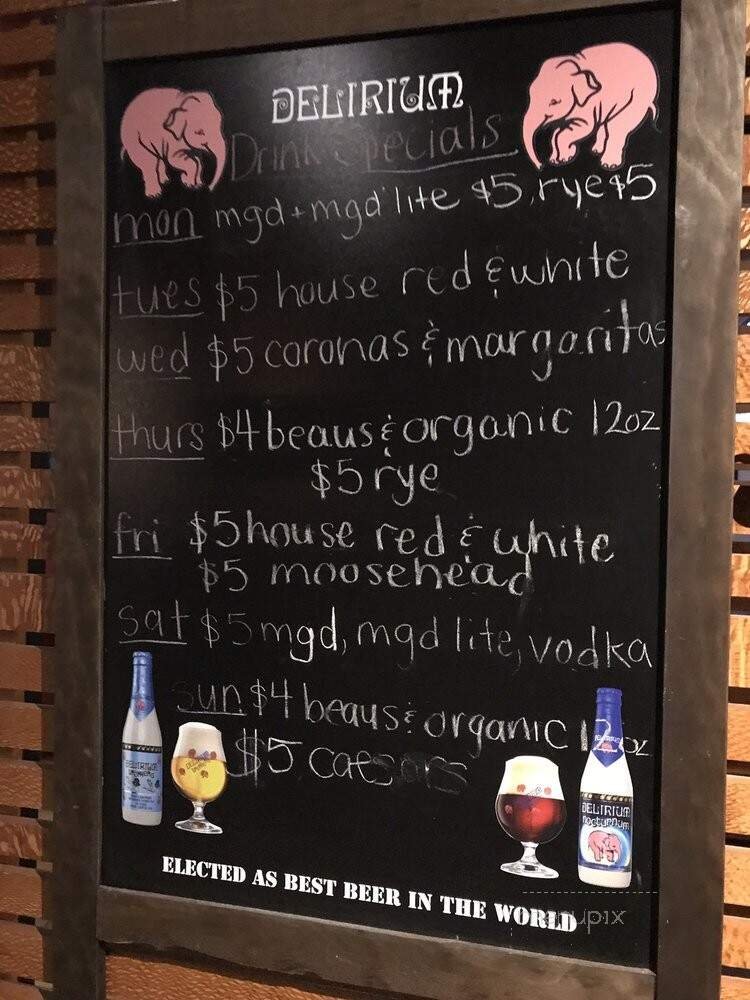 DELIRIUM
Drink Specials
mon mgd + mgd lite $5, rye $5
tues $5 house red & white
wed $5 coronas & margaritas
thurs $4 beaus & organic 12oz
$5 rye
fri $5 house red & white
$5 moosehead
sat $5 mgd, mgd lite, vodka
sun $4 beaus & organic 12oz
$5 caesars
DELIRIUM
DELIRIUM
nocturnum
ELECTED AS BEST BEER IN THE WORLD